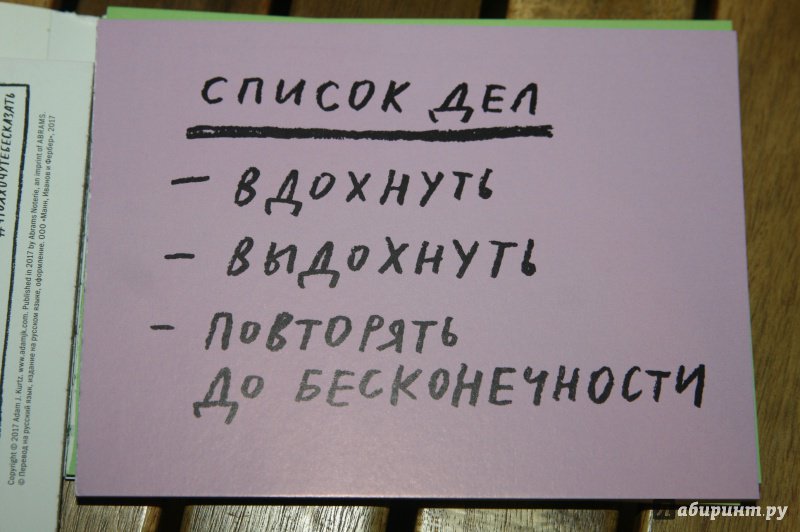 СПИСОК ДЕЛ
– ВДОХНУТЬ
– ВЫДОХНУТЬ
– ПОВТОРЯТЬ
ДО БЕСКОНЕЧНОСТИ
#ЧТОЯХОЧУТЕБЕСКАЗАТЬ
Copyright © 2017 Adam J. Kurtz. www.adamjk.com. Published in 2017 by Abrams Noterie, an imprint of ABRAMS.
© Перевод на русский язык, издание на русском языке, оформление. ООО «Манн, Иванов и Фербер», 2017
Лабиринт.ру